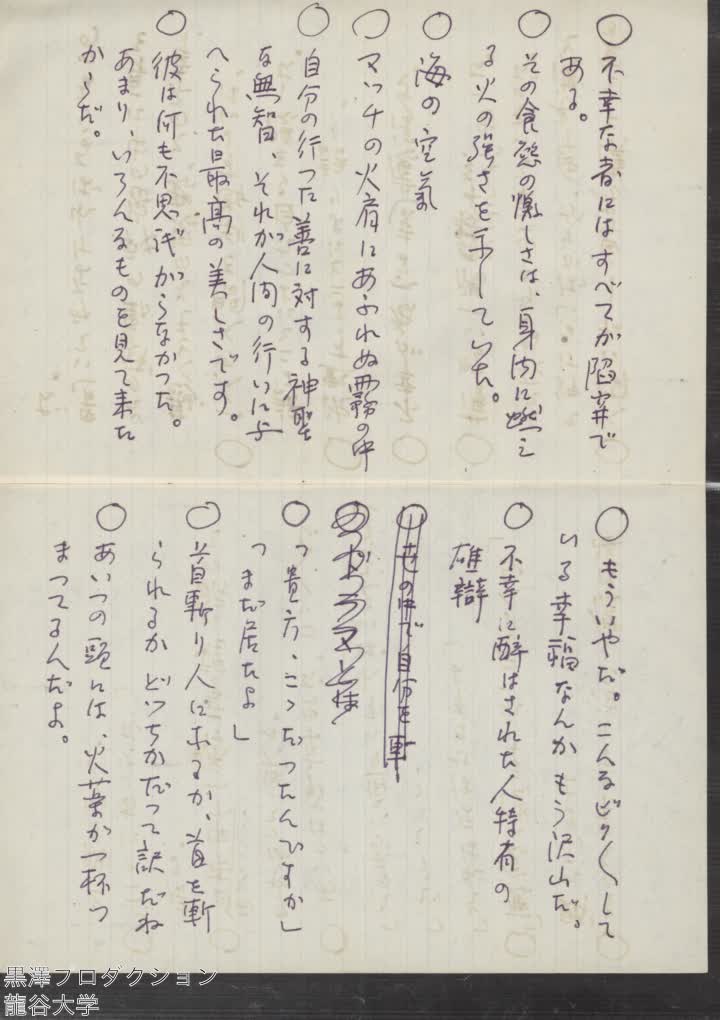 ○ 不幸な者にはすべてが陥穽で
ある。
○ その食慾の激しさは、身内に燃え
る火の強さを示していた。
○ 海の空氣
○ マッチの火
○ 自分の行つた善に対する神聖
な無智、それが人間の行いに与
へられた最高の美しさです。
○ 彼は何も不思議がらなかつた。
あまり、いろんなものを見て来た
からだ。
○ もういやだ。こんなビク〳〵して
いる幸福なんかもう沢山だ。
○ 不幸に醉はされた人特有の
雄辯
○
○ 「貴方、こゝだつたんですか」
「まだ居たよ」
○ 首斬り人になるか、首を斬
られるかどつちかだつて訳だね
○ あいつの頭には、火薬が一杯つ
まつてるんだよ。
黒澤プロダクション
龍谷大学